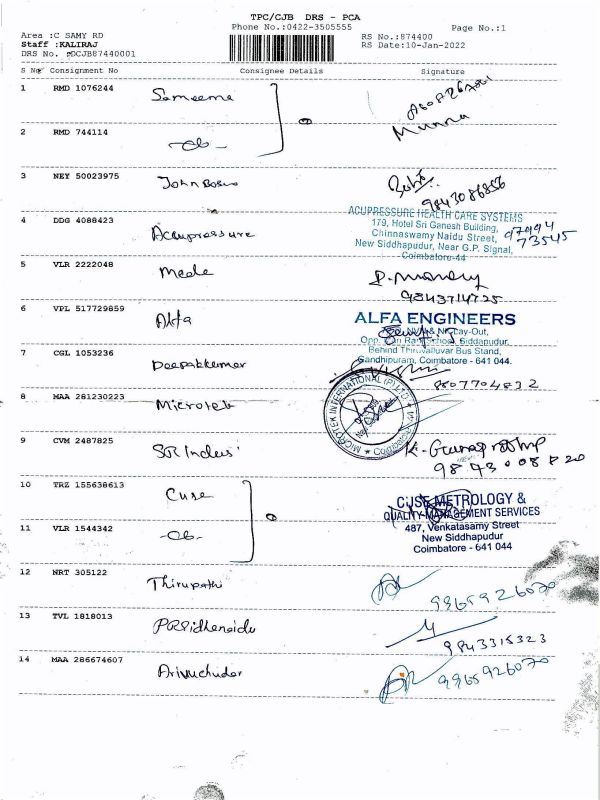 TPC/CJB DRS - PCA
Phone No.:0422-3505555
Page No.:1
Area :C SAMY RD
RS No.:874400
Staff :KALIRAJ
RS Date:10-Jan-2022
DRS No. :DCJB87440001
S No Consignment No Consignee Details Signature
1 RMD 1076244 Sameema
2 RMD 744114 -do- Munna
3 NEY 50023975 John Bosco
9843086856
4 DDG 4088423 Accupressure
ACUPRESSURE HEALTH CARE SYSTEMS
179, Hotel Sri Ganesh Building,
Chinnaswamy Naidu Street,
New Siddhapudur, Near G.P. Signal,
Coimbatore-44
97994
73545
5 VLR 2222048
9843714725
6 VPL 517729859 Alfa
ALFA ENGINEERS
Behind Thiruvalluvar Bus Stand,
Gandhipuram, Coimbatore - 641 044.
7 CGL 1053236 Deepakkumar
8807704832
8 MAA 281230223 Microteb
MICROTEK INTERNATIONAL (P) LTD.
9 CVM 2487825
98430 08820
10 TRZ 155638613 Cuse
CUSE METROLOGY &
QUALITY MANAGEMENT SERVICES
487, Venkatasamy Street
New Siddhapudur
Coimbatore - 641 044
11 VLR 1544342 -do-
12 NRT 305122 Thirupathi
9965926070
13 TVL 1818013
9843315323
14 MAA 286674607 Arivuchudar
9965926070